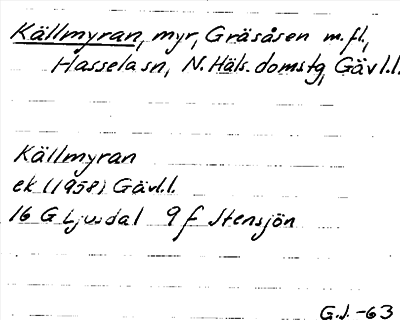 Källmyran, myr, Gräsåsen m.fl.,
Hassela sn, N. Häls. domstg, Gävl.l.
Källmyran
ek (1958) Gävl.l.
16 G Ljusdal 9 f Stensjön
G.J. -63